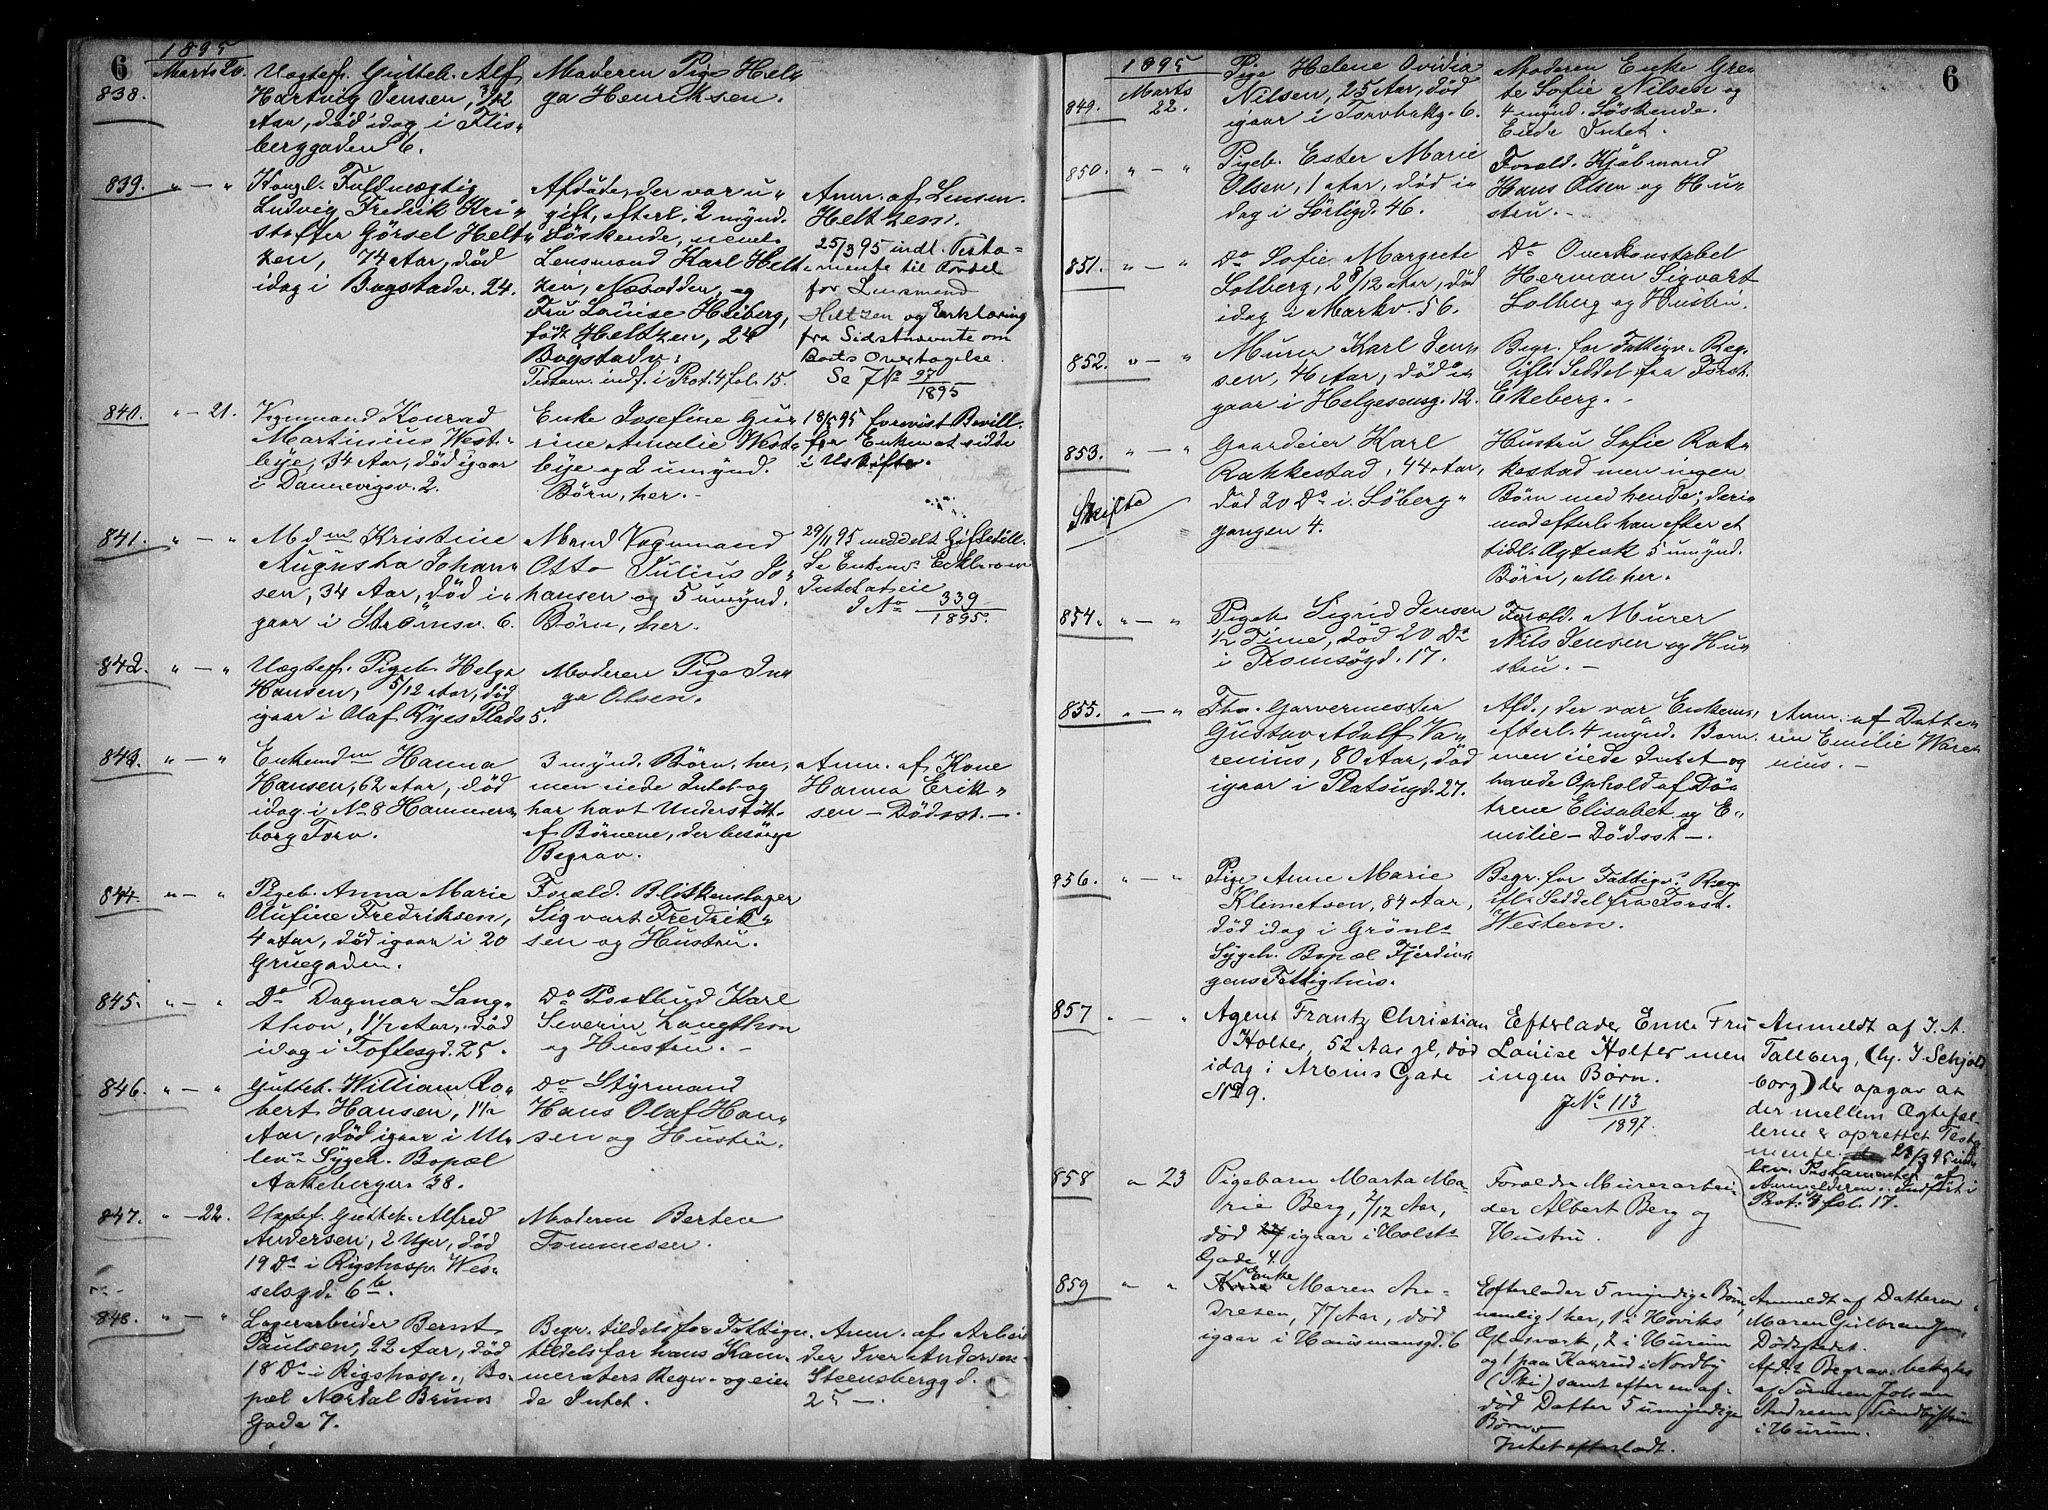 6
1895
Marts 20.
838.
Uægtef. Gutteb. Alf
Hartvig Jensen, 3/12
Aar, död idag i Flis-
berggaden 6.
Moderen Pige Hel-
ga Henriksen.
839. " — "
Kongel. Fuldmægtig
Ludvig Fredrik Kri-
stoffer Görsel Helt-
zen, 74 Aar, död
idag i Bogstadv. 24.
Afdöde, der var u-
gift, efterl. 2 mynd.
Söskende, nemlig
Lensmand Karl Helt-
zen, Næsodden, og
Fru Louise Heiberg,
födt Heltzen, 24
Bogstadv.
Testam. indf. i Prot. 4 fol. 15.
Anm. af Lensm.
Heltzen.
25/3 95 indl. Testa-
mente til Fordel
for Lensmand
Heltzen og Erklæring
fra Sidstnævnte om
Boets Overtagelse.
Se JNo 97/1895
840. " — 21.
Vognmand Konrad
Martinius West-
bye, 34 Aar, död igaar
i Dannevigsv. 2.
Enke Josefine Gu-
rine Amalie West-
bye og 2 umynd.
Börn, her. -
18/5 95 forevist Bevill.
for Enken at sidde
i Uskifte.
841. " — "
Mdm Kristine
Augusta Johan-
sen, 34 Aar, död i-
gaar i Strömsv. 6.
Mand Vognmand
Otto Julius Jo-
hansen og 5 umynd.
Börn, her.
29/11 95 meddelt Giftetill.
Se Enkem. Erkl. om
Intet at eie
JNo 339/1895.
842. " — "
Uægtef. Pigeb. Helga
Hansen, 5/12 Aar, död
igaar i Olaf Ryes Plads 5.
Moderen Pige In-
ga Olsen.
843. " — "
Enkemdm Hanna
Hansen, 62 Aar, död
idag i No 8 Hammers-
borg Torv.
3 mynd. Börn, her,
men eiede Intet og
har havt Understött.
af Börnene, der besörge
Begrav.
Anm. af Kone
Hanna Erik-
sen — Dödsst. —.
844. " — "
Pigeb. Anna Marie
Olufine Fredriksen,
4 Aar, död igaar i 20
Gruegaden.
Foræld. Blikkenslager
Sigvart Fredrik-
sen og Hustru.
845. " — "
Do Dagmar Lang-
thon, 1 1/2 Aar, död
idag i Toftesgd. 25.
Do Postbud Karl
Severin Langthon
og Hustru. -
846. " — "
Gutteb. William Ro-
bert Hansen, 1 1/2
Aar, död igaar i Ul-
lev. Sygeh. Bopæl
Aakebergv. 38.
Do Styrmand
Hans Olaf Han-
sen og Hustru.
847. " — 22.
Uægtef. Gutteb. Alfred
Andersen, 2 Uger, död
19 Ds i Rigshosp. Wes-
selsgd. 6 b.
Moderen Bertea
Tommessen.
848. " — "
Lagerarbeider Bernt
Paulsen, 22 Aar, död
18 Ds i Rigshosp., Bo-
pæl Nordal Bruns
Gade 7.
Begr. tildels for Fattigv.
tildels for hans Kam-
meraters Regn. og eie-
de Intet.
Anm. af Arbei-
der Iver Andersen
Steensberggd.
25 —.
6
1895
Marts
849. 22.
Pige Helene Ovidia
Nilsen, 25 Aar, död
igaar i Torvbakg. 6.
Moderen Enke Gre-
te Sofie Nilsen og
4 mynd. Söskende.
Eiede Intet.
850. " — "
Pigeb. Ester Marie
Olsen, 1 Aar, död i-
dag i Sörligd. 46.
Foræld. Kjöbmand
Hans Olsen og Hu-
stru. -
851. " — "
Do Sofie Margrete
Solberg, 2 8/12 Aar, död
idag i Markv. 56.
Do Overkonstabel
Herman Sigvart
Solberg og Hustru.
852. " — "
Murer Karl Jen-
sen, 46 Aar, död i-
gaar i Helgesensg. 12.
Begr. for Fattigv. Reg.
ifl. Seddel fra Forst.
Ekeberg. -
853. " — "
Skifte
Gaardeier Karl
Rakkestad, 44 Aar,
död 20 Ds i Söberg-
gangen 4.
Hustru Sofie Rak-
kestad men ingen
Börn med hende; deri-
mod efterl. han efter et
tidl. Ægtesk. 5 umynd.
Börn, alle her.
854. " — "
Pigeb. Sigrid Jensen
1/2 Time, död 20 Ds
i Tromsögd. 17.
Foræld. Murer
Nils Jensen og Hu-
stru. -
855. " — "
Fhv. Garvermester
Gustav Adolf Wa-
renius, 80 Aar, död
igaar i Platougd. 27.
Afd., der var Enkem.,
efterl. 4 mynd. Börn
men eiede Intet og
havde Ophold af Dö-
trene Elisabet og E-
milie — Dödsst —.
Anm. af Datte-
ren Emilie Ware-
nius. -
856. " — "
Pige Anne Marie
Klemetsen, 84 Aar,
död idag i Grönl.
Sygeh. Bopæl Fjerdin-
gens Fattighus.
Begr. for Fattigv. Reg.
ifl. Seddel fra Forst.
Western.
857 " — "
Agent Frantz Christian
Holter, 52 Aar gl, död
idag i Arbins Gade
No 9.
Efterlader Enke Fru
Louise Holter men
ingen Börn.
JNo 113/1897.
Anmeldt af I. A.
Tallberg, (hj. I. Schjöld
borg) der opgav at
der mellem Ægtefæl-
lerne er oprettet Testa-
mente. 23/3 95 ind-
lev. Testamentet af
Anmelderen. Indfört i
Prot. 4 fol. 17.
858 " 23
Pigebarn Marta Ma-
rie Berg, 2/12 Aar,
död igaar i Holsts
Gade 4.
Forældre Murerarbei-
der Albert Berg og
Hustru.
859 " "
Enke Maren An-
dresen, 77 Aar, död
igaar i Hausmansgd. 6
Efterlader 5 myndige Börn
nemlig 1 her, 1 i Höviks
Glasværk, 2 i Hurum
og 1 paa Kaxrud i Nordby
(Ski) samt efter en af-
död Datter 5 umyndige
Börn.
Intet efterladt.
Anmeldt af Datteren
Maren Gulbrandsen,
Dödsstedet.
Afd.s Begrav. bekostes
af Sönnen Johan
Andresen,
i Hurum.